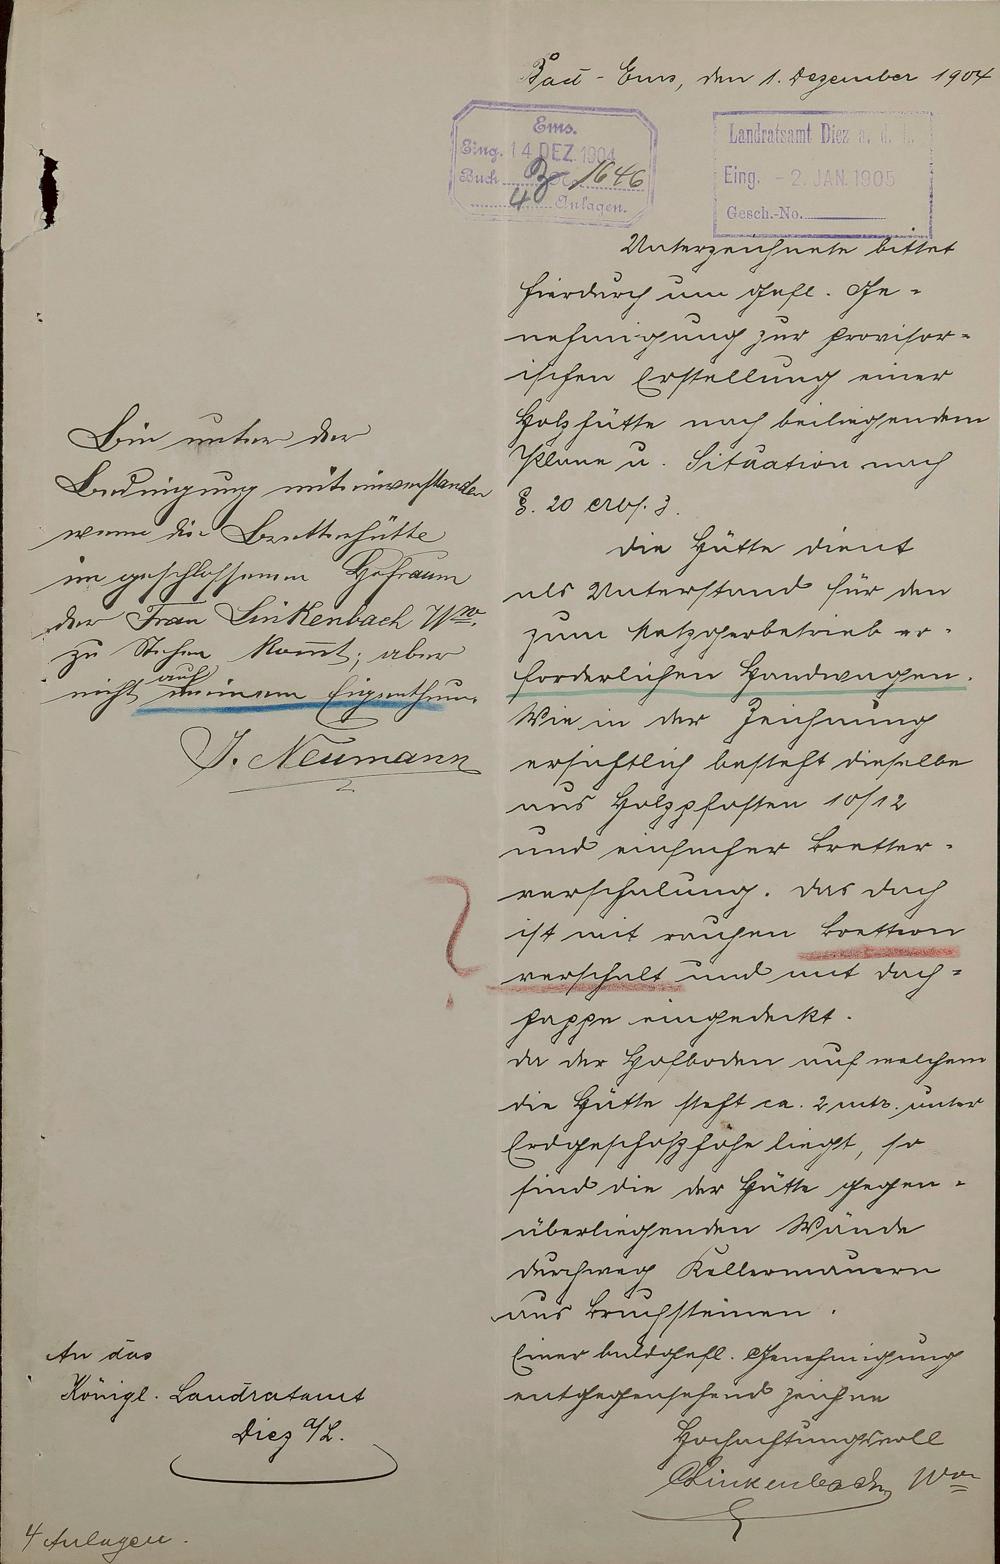 Bad-Ems, den 1. Dezember 1904
Ems.
Eing. 14 DEZ. 1904
Buch B No. 1646
4 Anlagen.
Landratsamt Diez a. d. L.
Eing. - 2. JAN. 1905
Gesch.-No.
Unterzeichnete bittet
hierdurch um gefl. Ge-
nehmigung zur provisor-
ischen Erstellung einer
Holzhütte nach beiliegendem
Plane u. Situation nach
§. 20 Abs. 3.
Die Hütte dient
als Unterstand für den
zum Metzgerbetrieb er-
forderlichen Handwagen.
Wie in der Zeichnung
ersichtlich besteht dieselbe
aus Holzpfosten 10/12
und einfacher Bretter-
verschalung. Das Dach
ist mit rauhen Brettern
verschalt und mit Dach-
pappe eingedeckt.
Da der Hofboden auf welchem
die Hütte steht ca. 2 mtr. unter
Erdgeschoßhöhe liegt, so
sind die der Hütte gegen-
überliegenden Wände
durchweg Kellermauern
aus Bruchsteinen.
Einer baldgefl. Genehmigung
entgegensehend zeichne
Hochachtungsvoll
Linkenbach Wwe
Bin unter der
Bedingung mit einverstanden
wenn die Bretterhütte
im geschlossenen Hofraum
der Frau Linkenbach Ww.
zu Stehen kom̅t; aber
nicht auf meinem Eigenthum.
J. Neumann
?
An das
Königl. Landratamt
Diez a/L.
4 Anlagen.